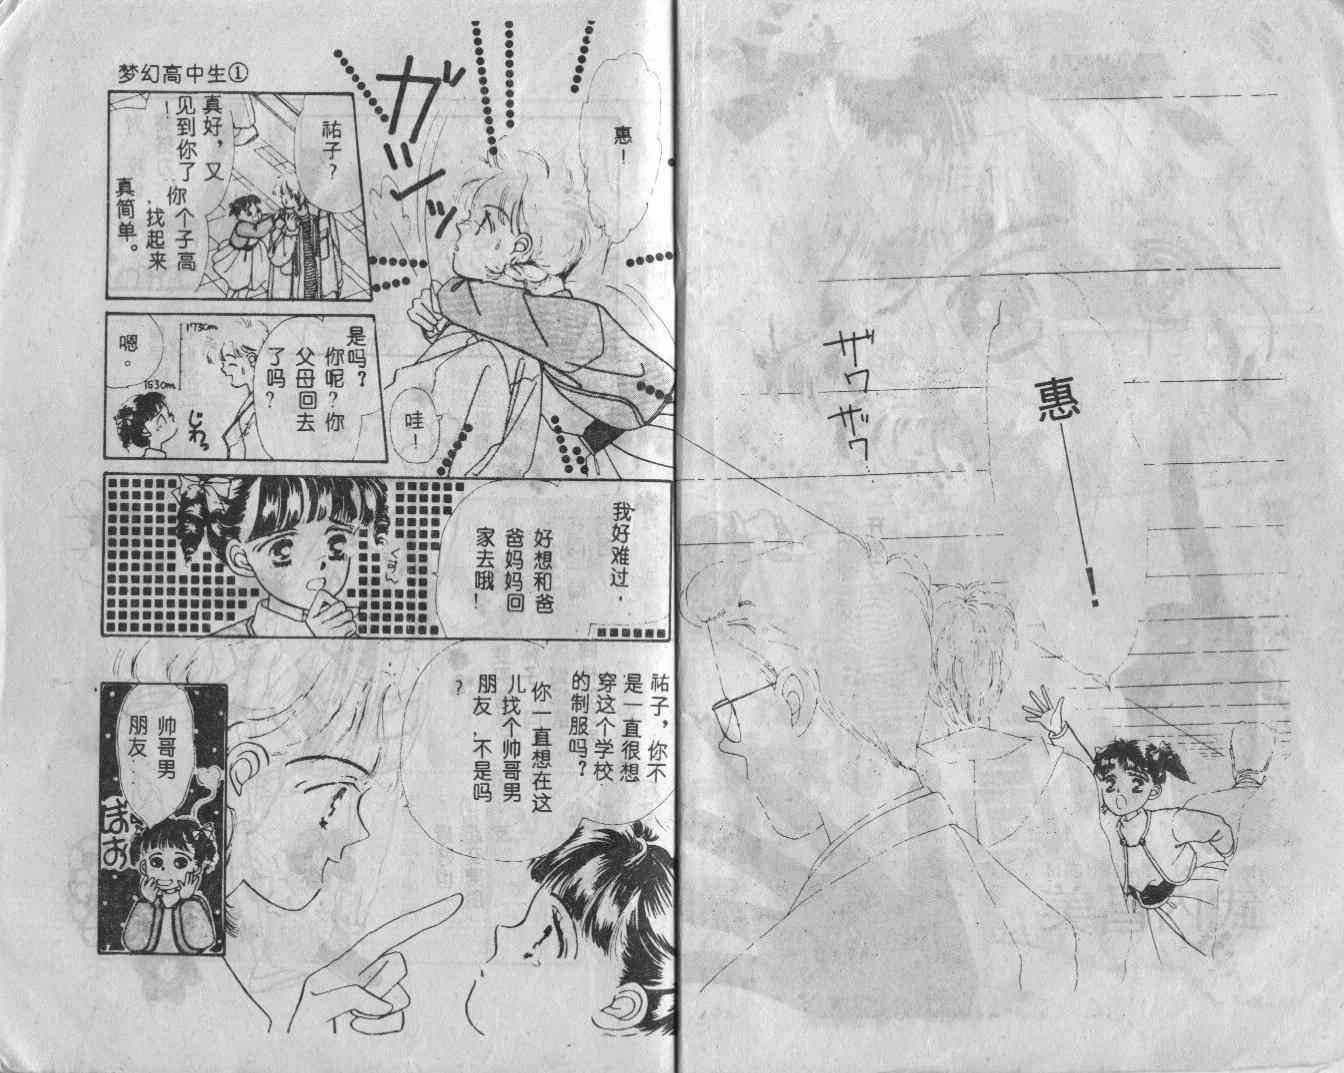 ザワ
ザワ
惠
！
惠！
ガシッ
哇！
梦幻高中生①
祐子？
真好，又
见到你了
！
你个子高
，找起来
真简单。
是吗？
你呢？你
父母回去
了吗？
173cm
163cm
嗯。
じわっ
我好难过，
好想和爸
爸妈妈回
家去哦！
ぐすん
祐子，你不
是一直很想
穿这个学校
的制服吗？
你一直想在这
儿找个帅哥男
朋友，不是吗
？
帅哥男
朋友…
ぽお